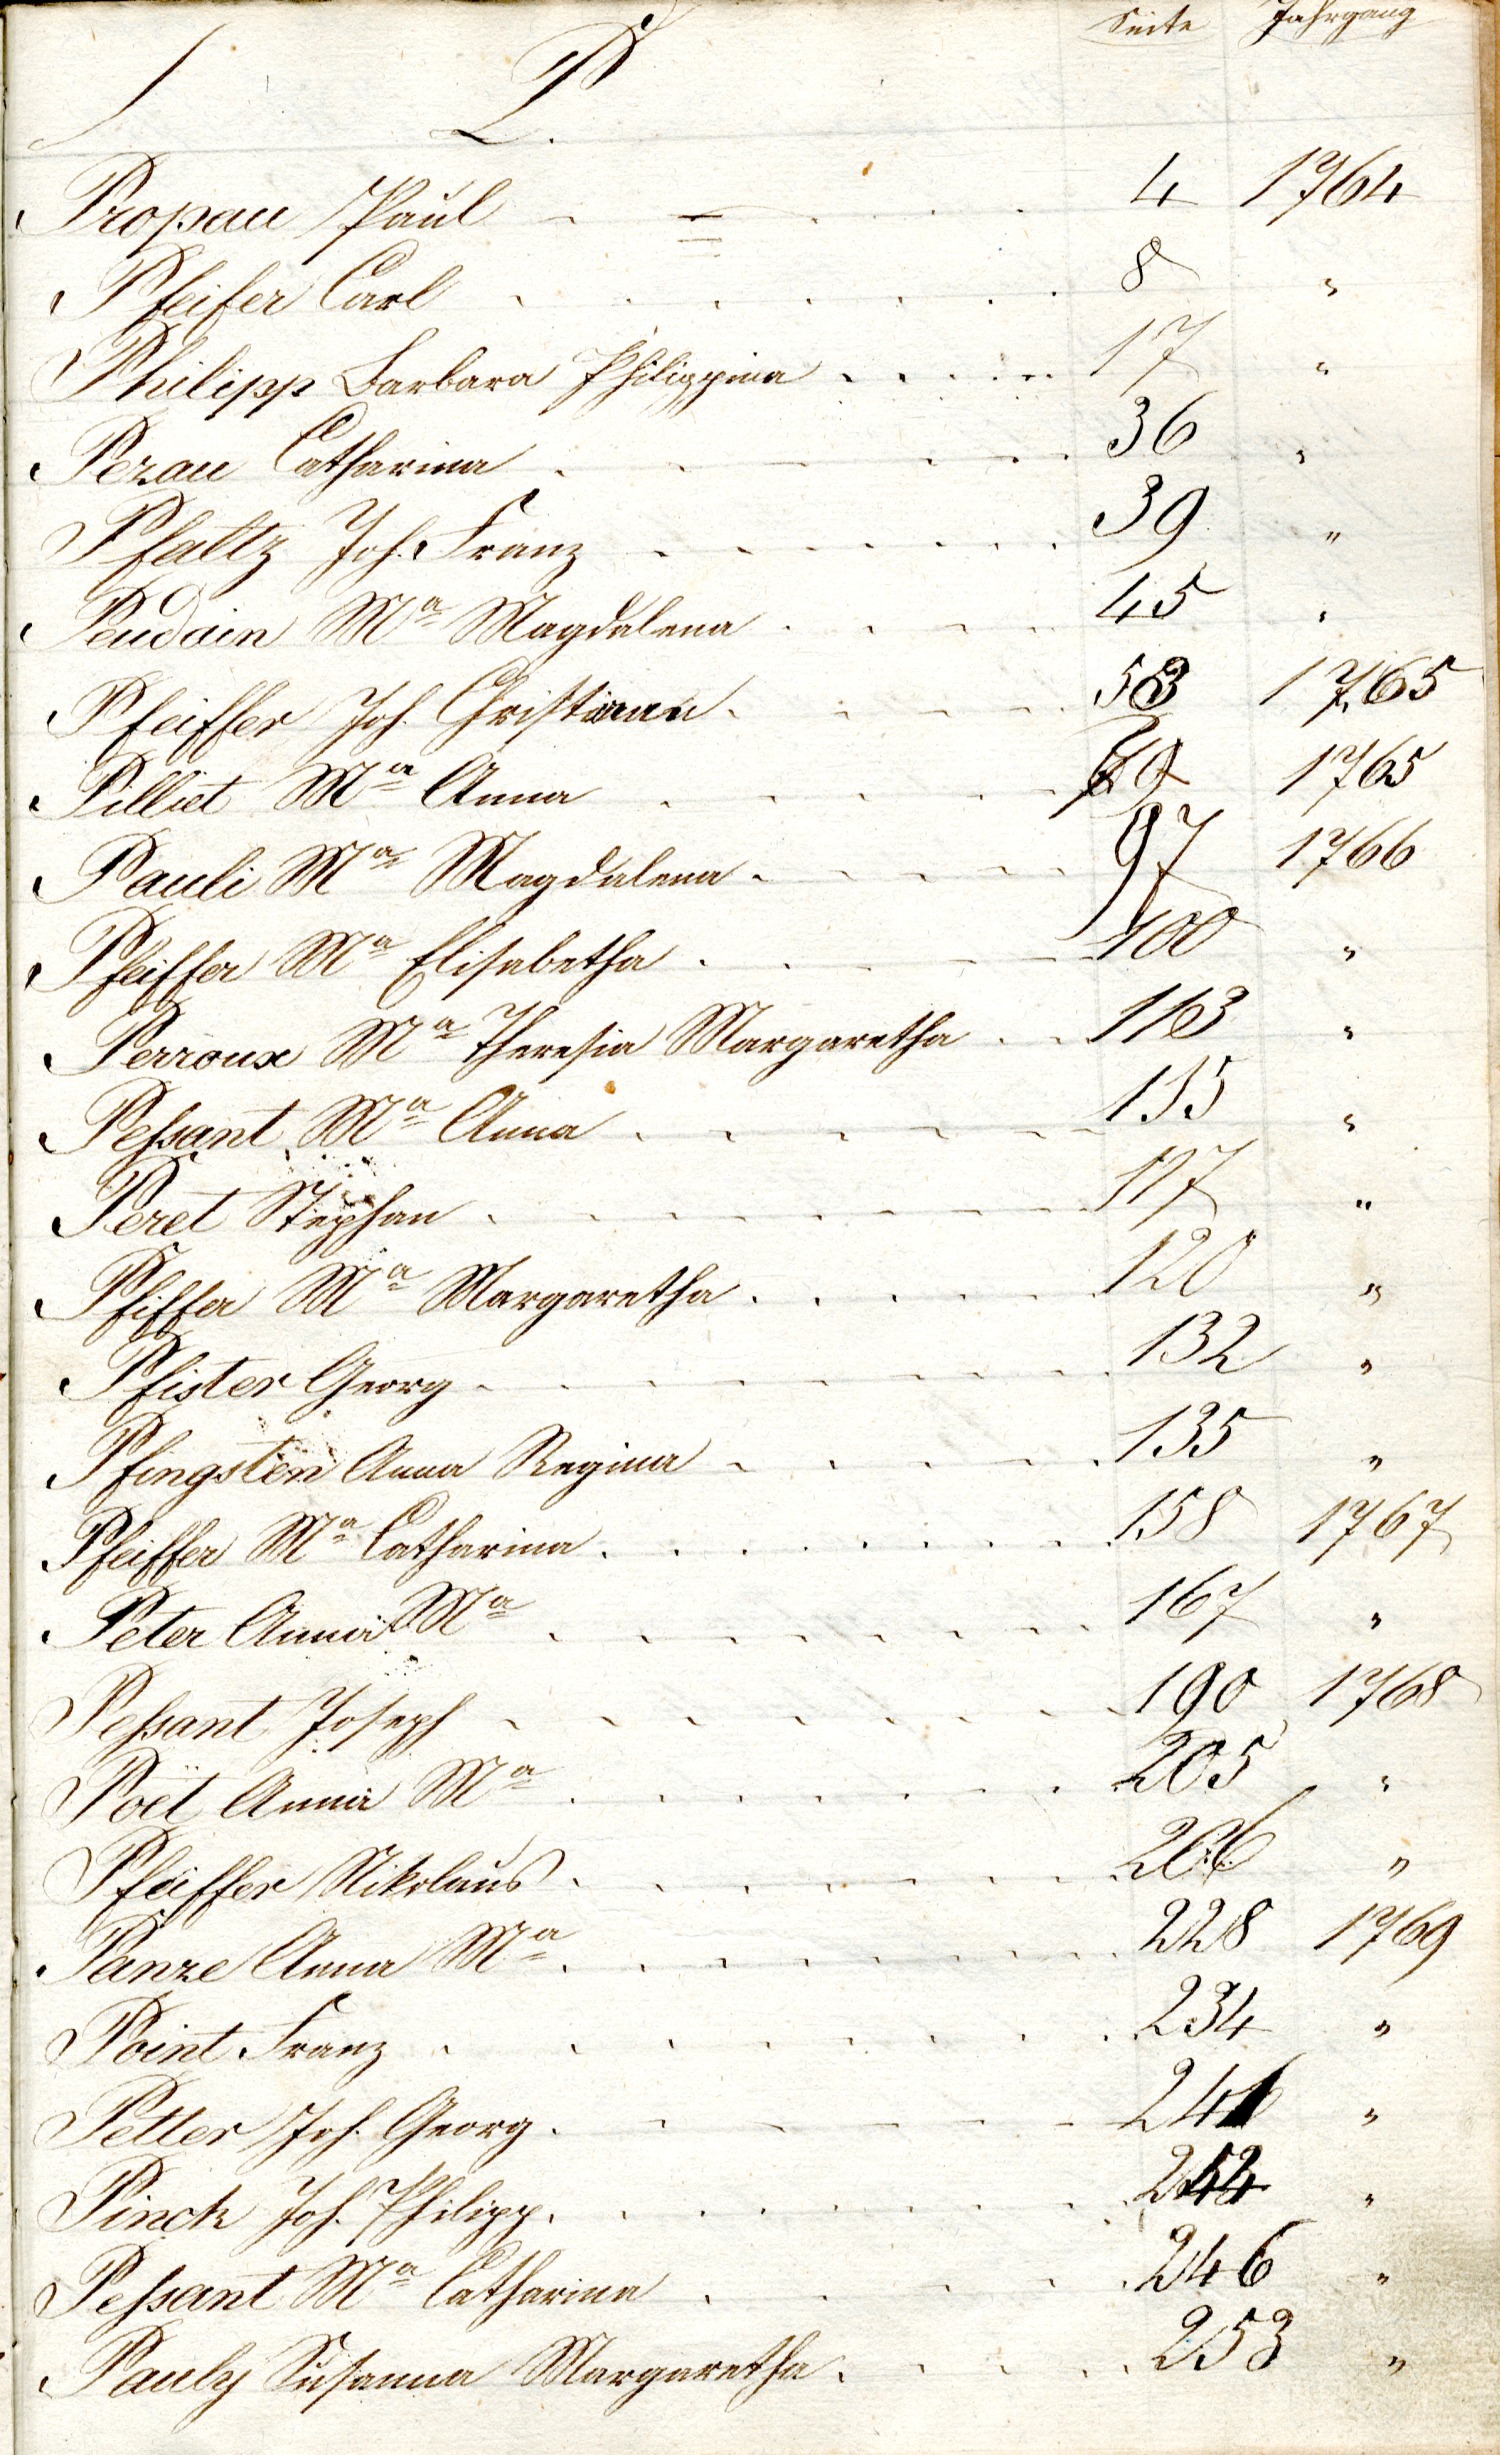 Seite Jahrgang
P.
Propau Paul 4 1764
Pfeifer Carl 8 "
Philipp Barbara Philippina 17 "
Perau Catharina 36 "
Pfaltz Joh. Franz 39 "
Peudain Ma Magdalena 45 "
Pfeiffer Joh. Christian 53 1765
Pilliet Ma Anna 1765
Pauli Ma Magdalena 97 1766
Pfeiffer Ma Elisabetha 100 "
Perroux Ma Theresia Margaretha 113 "
Peßant Ma Anna 115 "
Peret Stephan 117 "
Pfiffer Ma Margaretha 120 "
Pfister Georg 132 "
Pfingsten Anna Regina 135 "
Pfeiffer Ma Catharina 158 1767
Peter Anna Ma 167 "
Peßant Joseph 190 1768
Poët Anna Ma 205 "
Pfeiffer Nikolaus 206 "
Panze Anna Ma 228 1769
Point Franz 234 "
Petter Joh. Georg 241 "
Pinck Joh. Philipp "
Peßant Ma Catharina 246 "
Pauly Susanna Margaretha 253 "